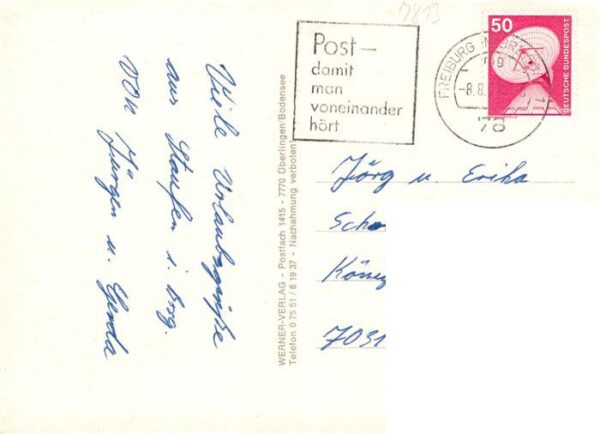 7813
Post –
damit
man
voneinander
hört
50
DEUTSCHE BUNDESPOST
FREIBURG
-8.8.
78
Viele Urlaubsgrüße
aus Staufen i. Brsg.
von Jürgen u. Gerda
WERNER-VERLAG - Postfach 1415 - 7770 Überlingen/Bodensee
Telefon 0 75 51 / 6 19 37 - Nachahmung verboten
Jörg u. Erika
Scho
König
7031